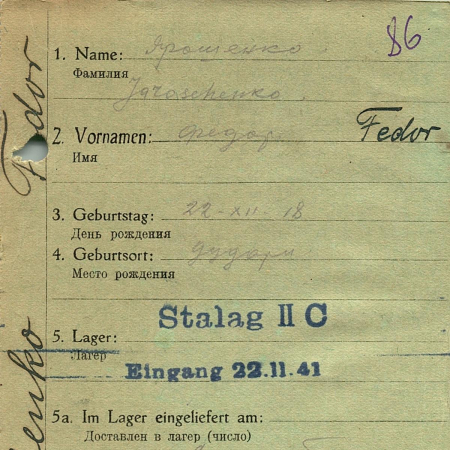 86
1. Name: Ярошенко
Фамилия
Jaroschenko
2. Vornamen: Федор Fedor
Имя
3. Geburtstag: 22-XII-18
День рождения
4. Geburtsort: Дудари
Место рождения
Stalag II C
5. Lager:
Лагер
Eingang 22.11.41
5a. Im Lager eingeliefert am:
Доставлен в лагер (число)
Fedor
enko